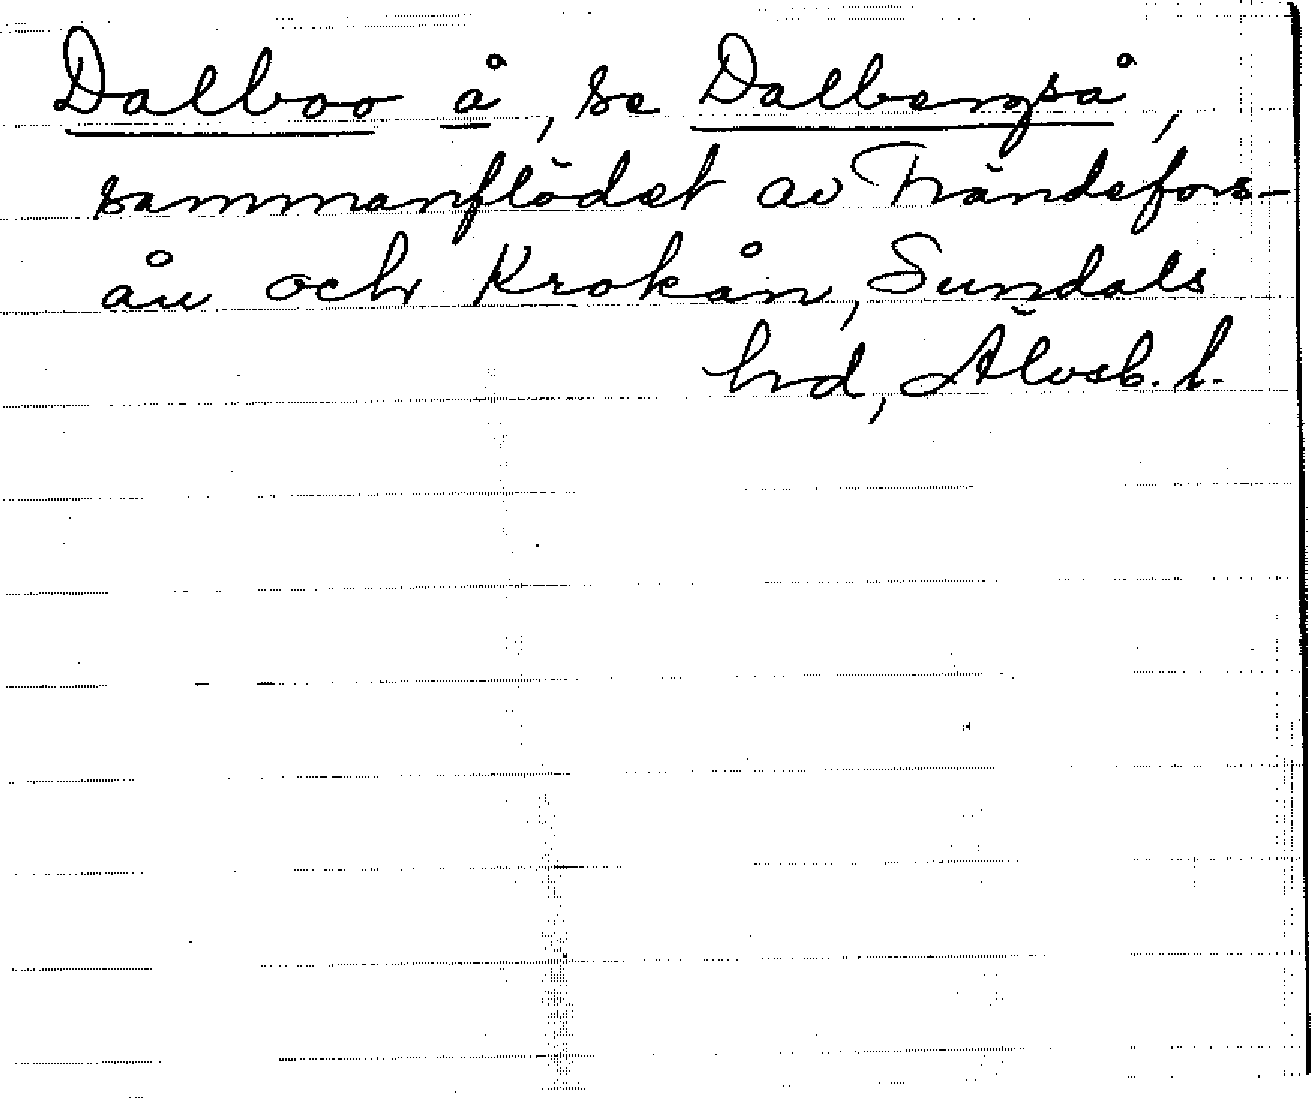 Dalboo å, se Dalbergså,
sammanflödet av Frändefors-
ån och Krokån, Sundals
hd, Älvsb. l.